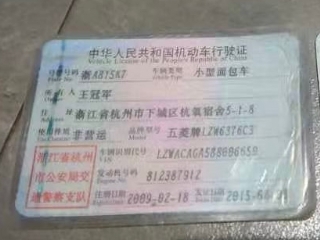 中华人民共和国机动车行驶证
Vehicle License of the People's Republic of China
号牌号码 浙A815K7 车辆类型 小型面包车
所有人 王冠军
住址 浙江省杭州市下城区杭氧宿舍5-1-8
使用性质 非营运 品牌型号 五菱牌LZW6376C3
浙江省杭州
市公安局交
通警察支队
车辆识别代号 VIN
发动机号码 812387912
注册日期 2009-02-18 发证日期